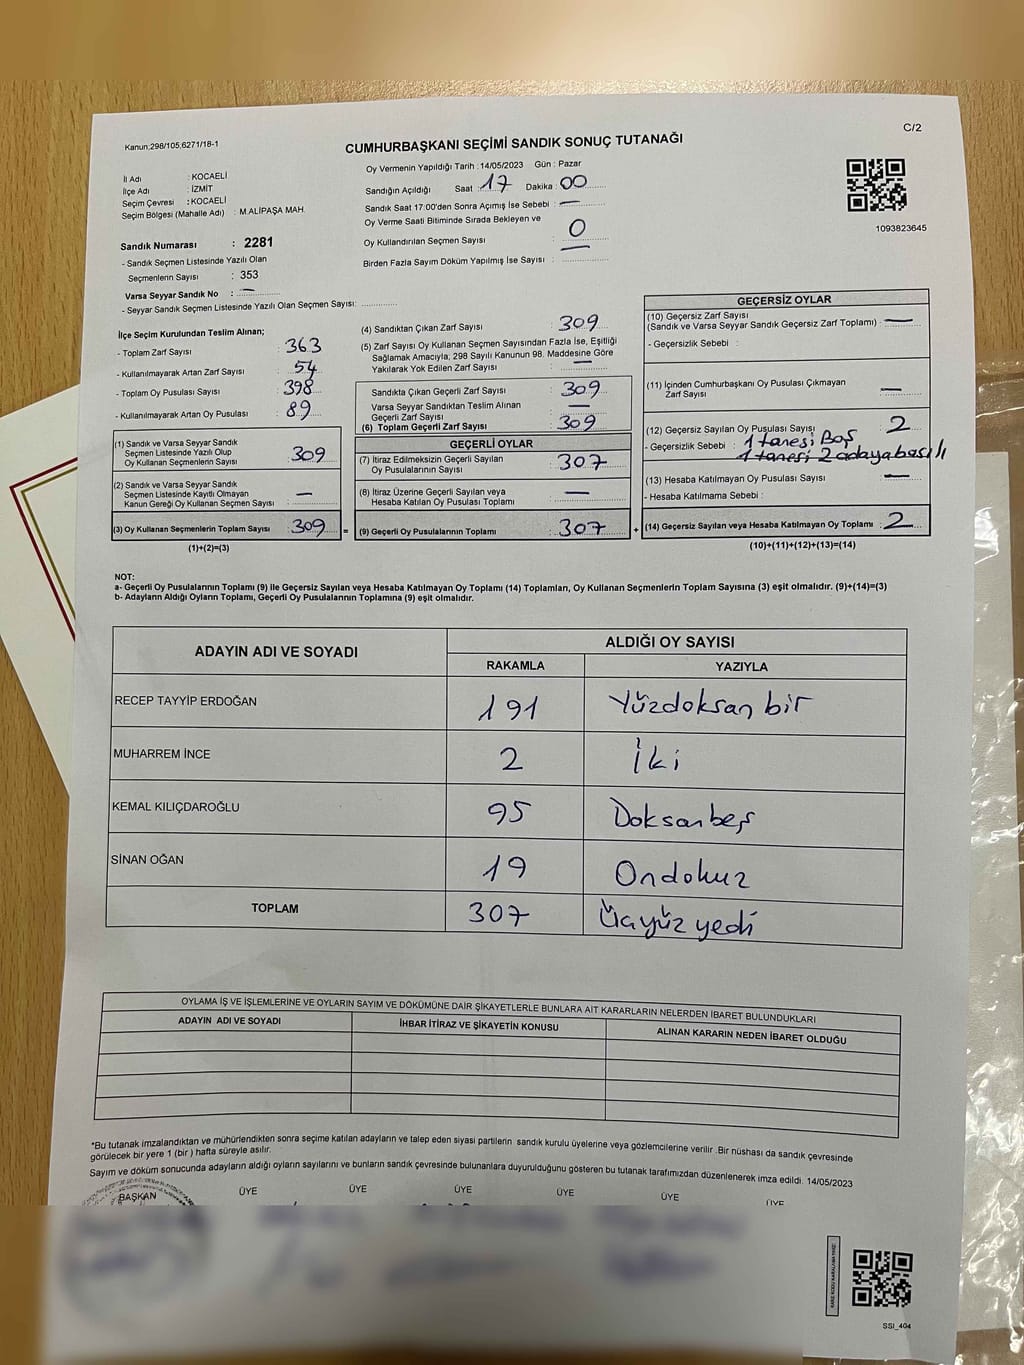 Kanun;298/105,6271/18-1
CUMHURBAŞKANI SEÇİMİ SANDIK SONUÇ TUTANAĞI
C/2
Oy Vermenin Yapıldığı Tarih :14/05/2023 Gün : Pazar
İl Adı : KOCAELİ
İlçe Adı : İZMİT
Seçim Çevresi : KOCAELİ
Seçim Bölgesi (Mahalle Adı) : M.ALİPAŞA MAH.
Sandığın Açıldığı Saat : 17 Dakika : 00
Sandık Saat 17:00'den Sonra Açımış İse Sebebi : —
Oy Verme Saati Bitiminde Sırada Bekleyen ve
Oy Kullandırılan Seçmen Sayısı : 0
Birden Fazla Sayım Döküm Yapılmış İse Sayısı : —
1093823645
Sandık Numarası : 2281
- Sandık Seçmen Listesinde Yazılı Olan
Seçmenlerin Sayısı : 353
Varsa Seyyar Sandık No : —
- Seyyar Sandık Seçmen Listesinde Yazılı Olan Seçmen Sayısı:
İlçe Seçim Kurulundan Teslim Alınan;
- Toplam Zarf Sayısı : 363
- Kullanılmayarak Artan Zarf Sayısı : 54
- Toplam Oy Pusulası Sayısı : 398
- Kullanılmayarak Artan Oy Pusulası : 89
(1) Sandık ve Varsa Seyyar Sandık
Seçmen Listesinde Yazılı Olup
Oy Kullanan Seçmenlerin Sayısı : 309
(2) Sandık ve Varsa Seyyar Sandık
Seçmen Listesinde Kayıtlı Olmayan
Kanun Gereği Oy Kullanan Seçmen Sayısı : —
(3) Oy Kullanan Seçmenlerin Toplam Sayısı : 309 =
(1)+(2)=(3)
(4) Sandıktan Çıkan Zarf Sayısı : 309
(5) Zarf Sayısı Oy Kullanan Seçmen Sayısından Fazla İse, Eşitliği
Sağlamak Amacıyla; 298 Sayılı Kanunun 98. Maddesine Göre
Yakılarak Yok Edilen Zarf Sayısı : —
Sandıkta Çıkan Geçerli Zarf Sayısı : 309
Varsa Seyyar Sandıktan Teslim Alınan
Geçerli Zarf Sayısı : —
(6) Toplam Geçerli Zarf Sayısı : 309
GEÇERLİ OYLAR
(7) İtiraz Edilmeksizin Geçerli Sayılan
Oy Pusulalarının Sayısı : 307
(8) İtiraz Üzerine Geçerli Sayılan veya
Hesaba Katılan Oy Pusulası Toplamı : —
(9) Geçerli Oy Pusulalarının Toplamı : 307 +
GEÇERSİZ OYLAR
(10) Geçersiz Zarf Sayısı
(Sandık ve Varsa Seyyar Sandık Geçersiz Zarf Toplamı) : —
- Geçersizlik Sebebi :
(11) İçinden Cumhurbaşkanı Oy Pusulası Çıkmayan
Zarf Sayısı : —
(12) Geçersiz Sayılan Oy Pusulası Sayısı : 2
- Geçersizlik Sebebi : 1 tanesi Boş
1 tanesi 2 adaya basılı
(13) Hesaba Katılmayan Oy Pusulası Sayısı : —
- Hesaba Katılmama Sebebi :
(14) Geçersiz Sayılan veya Hesaba Katılmayan Oy Toplamı : 2
(10)+(11)+(12)+(13)=(14)
NOT:
a- Geçerli Oy Pusulalarının Toplamı (9) ile Geçersiz Sayılan veya Hesaba Katılmayan Oy Toplamı (14) Toplamları, Oy Kullanan Seçmenlerin Toplam Sayısına (3) eşit olmalıdır. (9)+(14)=(3)
b- Adayların Aldığı Oyların Toplamı, Geçerli Oy Pusulalarının Toplamına (9) eşit olmalıdır.
ADAYIN ADI VE SOYADI
ALDIĞI OY SAYISI
RAKAMLA YAZIYLA
RECEP TAYYİP ERDOĞAN 191 Yüzdoksan bir
MUHARREM İNCE 2 İki
KEMAL KILIÇDAROĞLU 95 Doksanbeş
SİNAN OĞAN 19 Ondokuz
TOPLAM 307 Üçyüz yedi
OYLAMA İŞ VE İŞLEMLERİNE VE OYLARIN SAYIM VE DÖKÜMÜNE DAİR ŞİKAYETLERLE BUNLARA AİT KARARLARIN NELERDEN İBARET BULUNDUKLARI
ADAYIN ADI VE SOYADI İHBAR İTİRAZ VE ŞİKAYETİN KONUSU ALINAN KARARIN NEDEN İBARET OLDUĞU
*Bu tutanak imzalandıktan ve mühürlendikten sonra seçime katılan adayların ve talep eden siyasi partilerin sandık kurulu üyelerine veya gözlemcilerine verilir .Bir nüshası da sandık çevresinde
görülecek bir yere 1 (bir ) hafta süreyle asılır.
Sayım ve döküm sonucunda adayların aldığı oyların sayılarını ve bunların sandık çevresinde bulunanlara duyurulduğunu gösteren bu tutanak tarafımızdan düzenlenerek imza edildi. 14/05/2023
BAŞKAN ÜYE ÜYE ÜYE ÜYE ÜYE ÜYE
SSI_404